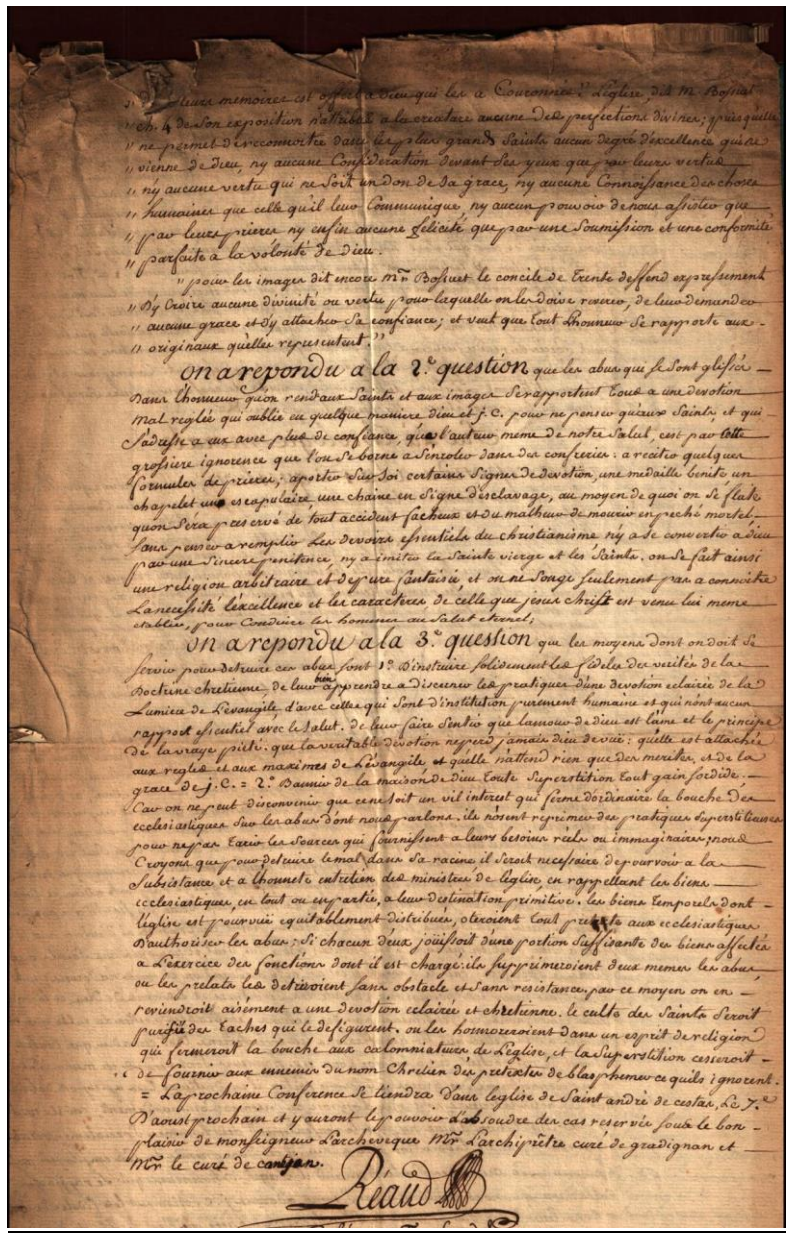 " de leurs memoires est offert a Dieu qui les a Couronnés. L'Eglise, dit M. Bossuet
" ch. 4 de Son exposition n'attribue a la creature aucune des perfections divines; puisqu'elle
" ne permet de reconnoitre dans les plus grands Saints aucun degré d'excellence qui ne
" vienne de Dieu, ny aucune Considération devant Ses yeux que par leurs vertus
" ny aucune vertu qui ne Soit un don de Sa grace, ny aucune Connoissance des choses
" humaines que celle qu'il leur Communique, ny aucun pouvoir de nous assister que
" par leurs prieres ny enfin aucune félicité que par une Soumission et une conformité
" parfaite a la volonté de Dieu.
" pour les images dit encore Mr. Bossuet le concile de Trente deffend expressement
" D'y Croire aucune divinité ou vertu pour laquelle on les doive reverer, de leur demander
" aucune grace et d'y attacher Sa confiance; et veut que tout L'honneur Se rapporte aux
" originaux qu'elles representent."
On a repondu a la 2.e question que les abus qui Se Sont glissés
Dans L'honneur qu'on rend aux Saints et aux images Se rapportent Tous a une devotion
Mal reglée qui oublie en quelque maniere dieu et j. C. pour ne penser qu'aux Saints, et qui
S'adresse a eux avec plus de confiance, qu'a l'auteur meme de notre Salut, c'est par Cette
grossiere ignorence que l'on Se borne a S'enroler dans des confreries: a reciter quelques
formules de prieres; a porter Sur Soi certains Signes de devotion, une medaille benite un
chapelet un escapulaire une chaine en Signe d'esclavage, au moyen de quoi on Se flate
qu'on Sera preservé de tout accident facheux et du malheur de mourir en peché mortel
Sans penser a remplir Les devoirs essentiels du christianisme n'y a Se convertir a Dieu
par une Sincere penitence, ny a imiter la Sainte vierge et les Saints. on Se fait ainsi
une religion arbitraire et de pure fantaisie et on ne Songe Seulement pas a connoitre
La necessité L'excellence et les caracteres, de celle que jesus Christ est venu lui meme
etablir, pour Conduire les hommes au Salut eternel;
On a repondu a la 3.e question que les moyens dont on doit Se
Servir pour detruire ces abus Sont 1.o D'instruire Solidement les fideles des verités de la
Doctrine chretienne, de leur bien apprendre a discerner les pratiques d'une devotion eclairée de la
Lumiere de L'evangile d'avec celles qui Sont d'institution purement humaine et qui n'ont aucun
rapport essentiel avec le Salut. de leur faire Sentir que L'amour de dieu est L'ame et le principe
de la vraye pieté. que la veritable devotion ne perd jamais dieu de vüe: qu'elle est attachée
aux regles et aux maximes de L'evangile et qu'elle n'attend rien que des merites, et de la
grace de j. C. = 2.o Bannir de la maison de Dieu toute Superstition tout gain Sordide.
Car on ne peut disconvenir que ce ne Soit un vil interest qui ferme d'ordinaire la bouche des
ecclesiastiques Sur les abus dont nous parlons. ils n'osent reprimer des pratiques Superstitieuses
pour ne pas Tarir les Sources qui fournissent a leurs besoins réels ou immaginaires; nous
Croyons que pour detruire le mal dans Sa racine il Seroit necessaire de pourvoir a la
Subsistance et a L'honnete entretien des ministres de L'eglise en rappellant les biens
ecclesiastiques, en tout ou en partie, a leur destination primitive. les biens temporels dont
l'eglise est pourvüe equitablement distribués, oteroient tout pretexte aux ecclesiastiques
D'authoriser les abus: Si chacun d'eux joüissoit d'une portion Suffisante des biens affectés
a L'exercice des fonctions dont il est chargé: ils Supprimeroient d'eux memes les abus
ou les prelats les detruiroient Sans obstacle et Sans resistance, par ce moyen on en
reviendroit aisément a une devotion eclairée et chretienne. le culte des Saints Seroit
purifié des Taches qui le defigurent. on les honoreroient dans un esprit de religion
qui fermeroit la bouche aux calomniateurs de L'eglise, et la Superstition cesseroit
de fournir aux ennemis du nom Chretien des pretextes de blasphemer ce qu'ils ignorent.
= La prochaine Conference Se tiendra dans l'eglise de Saint andré de cestas, Le 7.e
D'aoust prochain et y auront le pouvoir d'absoudre des cas reservés Sous le bon
plaisir de monseigneur L'archeveque Mr. L'archiprêtre curé de gradignan et
Mr. le curé de canéjan.
Réaud